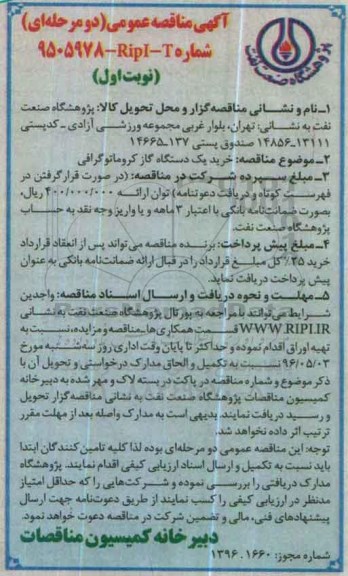 آگهی مناقصه عمومی (دو مرحله‌ای)
شماره RipI-T-9505978
(نوبت اول)
پژوهشگاه صنعت نفت
1-نام و نشانی مناقصه‌گزار و محل تحویل کالا: پژوهشگاه صنعت
نفت به نشانی: تهران، بلوار غربی مجموعه ورزشی آزادی ـ کدپستی
۱۴۸۵۶-۱۳۱۱۱ صندوق پستی ۱۳۷-۱۴۶۶۵
۲-موضوع مناقصه: خرید یک دستگاه گاز کروماتوگرافی
۳-مبلغ سپرده شرکت در مناقصه: (در صورت قرار گرفتن در
فهرست کوتاه و دریافت دعوتنامه) توان ارائه ۴۰۰/۰۰۰/۰۰۰ ریال،
بصورت ضمانت‌نامه بانکی با اعتبار ۳ماهه و یا واریز وجه نقد به حساب
پژوهشگاه صنعت نفت.
۴-مبلغ پیش پرداخت: برنده مناقصه می‌تواند پس از انعقاد قرارداد
خرید ۲۵٪ کل مبلغ قرارداد را در قبال ارائه ضمانت‌نامه بانکی به عنوان
پیش پرداخت دریافت نماید.
۵-مهلت و نحوه دریافت و ارسال اسناد مناقصه: واجدین
شرایط می‌توانند با مراجعه به پورتال پژوهشگاه صنعت نفت به نشانی
WWW.RIPI.IR قسمت همکاری‌ها ـ مناقصه و مزایده، نسبت به
تهیه اوراق اقدام نموده و حداکثر تا پایان وقت اداری روز سه‌شنبه مورخ
۹۶/۰۵/۰۳ نسبت به تکمیل و الحاق مدارک درخواستی و تحویل آن با
ذکر موضوع و شماره مناقصه در پاکت در بسته لاک و مهر شده به دبیرخانه
کمیسیون مناقصات پژوهشگاه صنعت نفت به نشانی مناقصه‌گزار تحویل
و رسید دریافت نمایند. بدیهی است به مدارک واصله بعد از مهلت مقرر
ترتیب اثر داده نخواهد شد.
توجه: این مناقصه عمومی دو مرحله‌ای بوده لذا کلیه تامین کنندگان ابتدا
باید نسبت به تکمیل و ارسال اسناد ارزیابی کیفی اقدام نمایند. پژوهشگاه
مدارک دریافتی را بررسی نموده و شرکت‌هایی را که حداقل امتیاز
مدنظر در ارزیابی کیفی را کسب نمایند از طریق دعوت‌نامه جهت ارسال
پیشنهادهای فنی، مالی و تضمین شرکت در مناقصه دعوت خواهد نمود.
دبیرخانه کمیسیون مناقصات
شماره مجوز: ۱۶۶۰. ۱۳۹۶